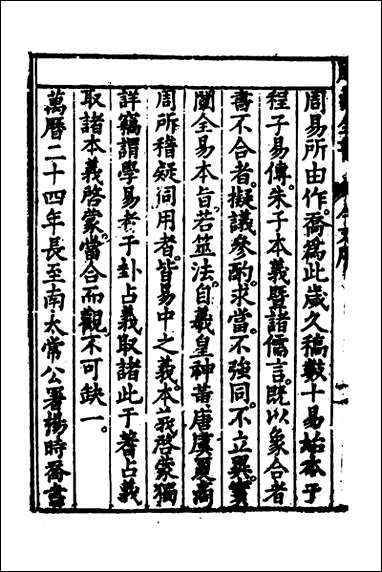 周易所由作喬爲此歲久稿數十易始本于
程子易傳朱子本義暨諸儒言旣以象合者
書不合者擬議參酌求當不強同不立異實
闡全易本旨若筮法自羲皇神黃唐虞夏商
周所稽疑同用者皆易中之義本義啓蒙獨
詳竊謂學易者于卦占義取諸此于蓍占義
取諸本義啓蒙當合而觀不可缺一
萬曆二十四年長至南太常公署楊時喬書